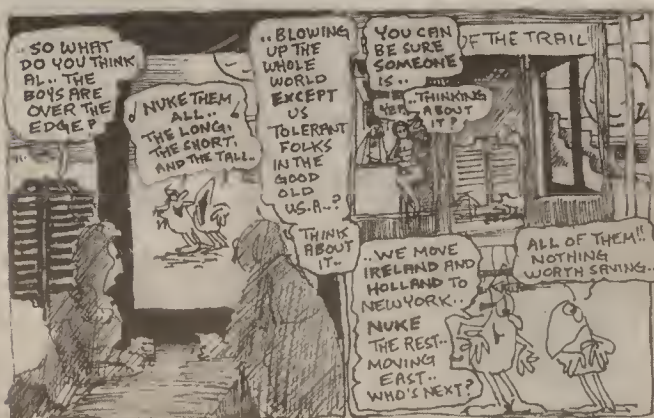 .. SO WHAT
DO YOU THINK
AL.. THE
BOYS ARE
OVER THE
EDGE?
♪ NUKE THEM ♪
ALL..
THE LONG,
THE SHORT,
AND THE TALL..
.. BLOWING
UP THE
WHOLE
WORLD
EXCEPT
US
TOLERANT
FOLKS
IN THE
GOOD
OLD
U.S.A..?
THINK
ABOUT
IT..
YOU CAN
BE SURE
SOMEONE
IS..
YEP..
..THINKING
ABOUT
IT?
OF THE TRAIL
..WE MOVE
IRELAND AND
HOLLAND TO
NEWYORK..
NUKE
THE REST..
MOVING
EAST..
WHO'S NEXT?
ALL OF THEM!!
NOTHING
WORTH SAVING..